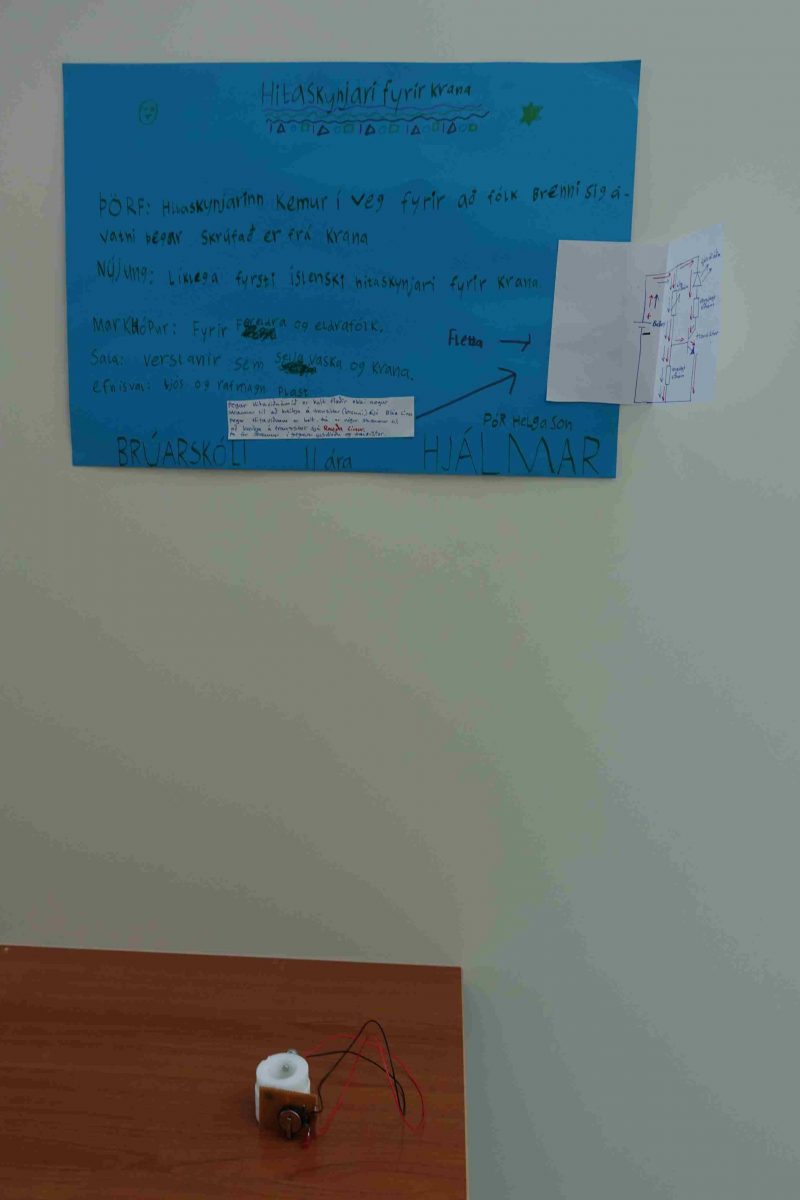 Hitaskynjari fyrir krana
ÞÖRF: Hitaskynjarinn kemur í veg fyrir að fólk brenni sig á
vatni þegar skrúfað er frá krana
NÝJUNG: Líklega fyrsti íslenski hitaskynjari fyrir krana
Markhópur: Fyrir Foreldra og eldrafólk.
Sala: verslanir sem selja vaska og krana.
efnisval: ljós og rafmagn Plast
Fletta
Þegar hitaviðnámið er kalt flæðir ekki nægur
straumur til að kveikja á transistor
þegar hitaviðnámið er heitt þá er nægur straumur til
að kveikja á transistor sjá Rauða línu.
ÞÓR HELGASON
BRÚARSKÓLI 11 ára HJÁLMAR
transistor